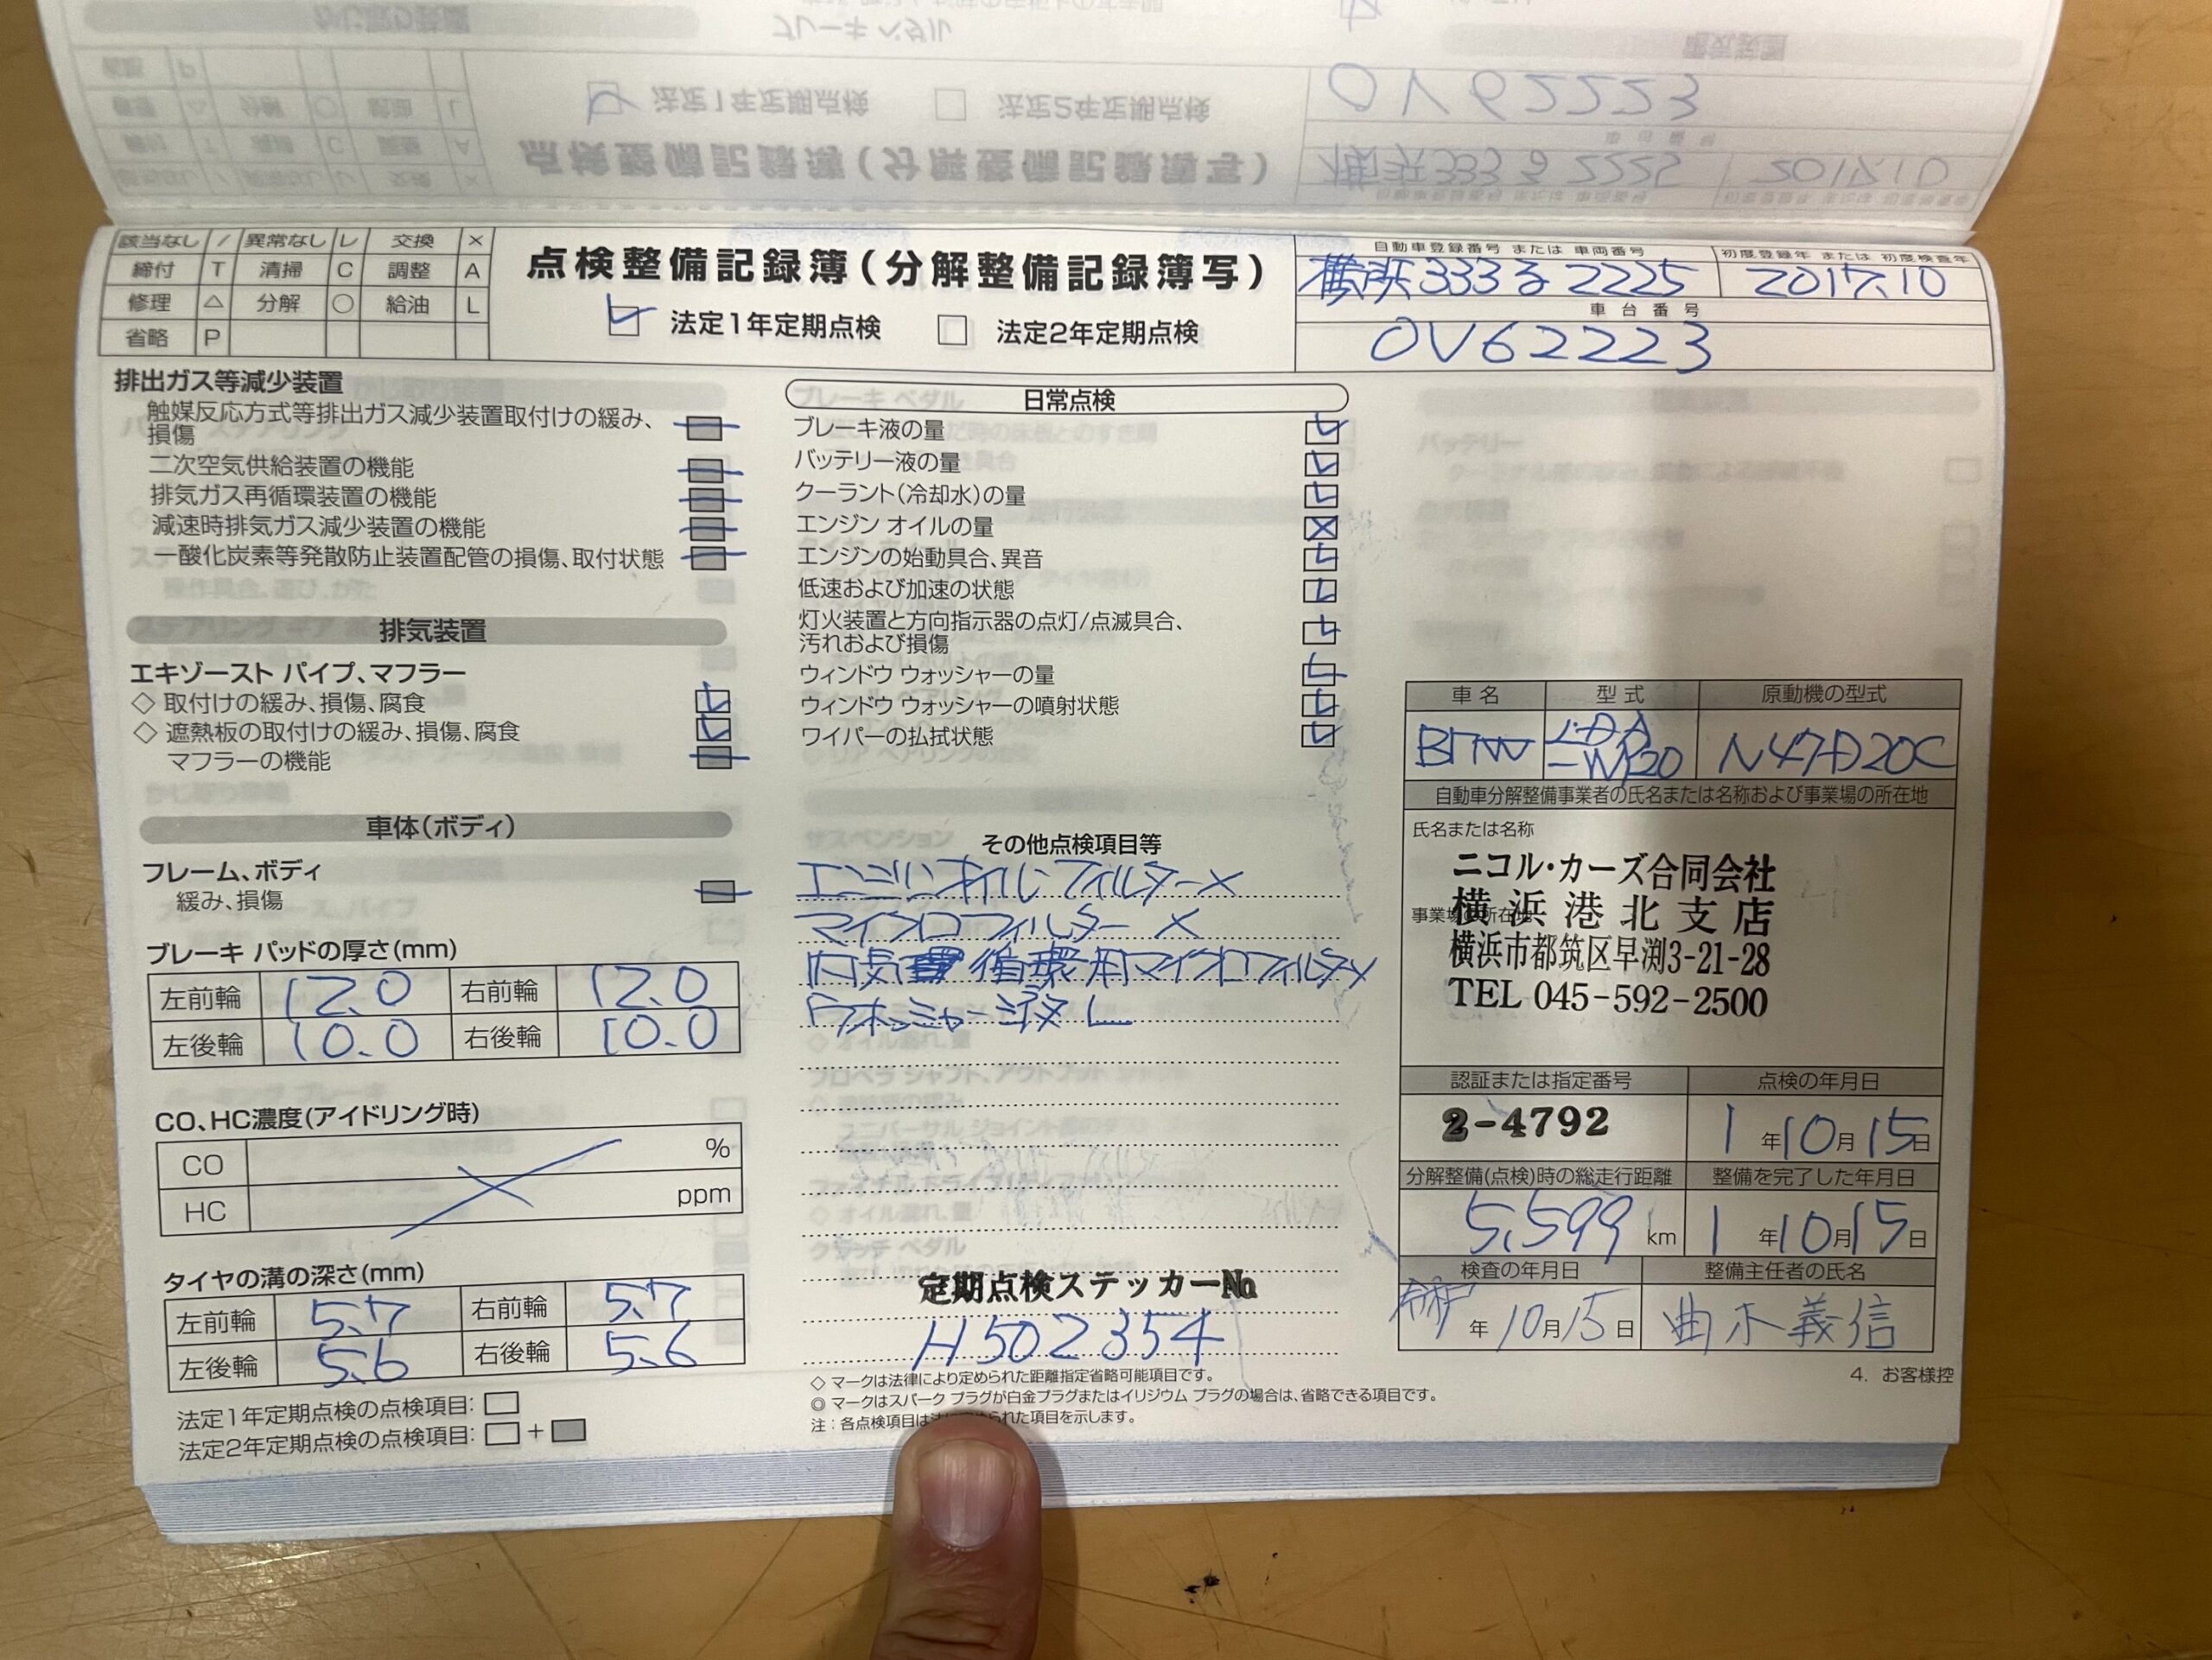 該当なし / 異常なし レ 交換 ×
締付 T 清掃 C 調整 A
修理 △ 分解 ○ 給油 L
省略 P
点検整備記録簿(分解整備記録簿写)
法定1年定期点検 法定2年定期点検
自動車登録番号 または 車両番号 初度登録年 または 初度検査年
横浜 333 る 2225 2017.10
車台番号
0V62223
排出ガス等減少装置
触媒反応方式等排出ガス減少装置取付けの緩み、
損傷
二次空気供給装置の機能
排気ガス再循環装置の機能
減速時排気ガス減少装置の機能
一酸化炭素等発散防止装置配管の損傷、取付状態
排気装置
エキゾースト パイプ、マフラー
◇ 取付けの緩み、損傷、腐食
◇ 遮熱板の取付けの緩み、損傷、腐食
マフラーの機能
車体(ボディ)
フレーム、ボディ
緩み、損傷
ブレーキ パッドの厚さ(mm)
左前輪 12.0 右前輪 12.0
左後輪 10.0 右後輪 10.0
CO、HC濃度(アイドリング時)
CO %
HC ppm
タイヤの溝の深さ(mm)
左前輪 5.7 右前輪 5.7
左後輪 5.6 右後輪 5.6
法定1年定期点検の点検項目:
法定2年定期点検の点検項目: +
日常点検
ブレーキ液の量
バッテリー液の量
クーラント(冷却水)の量
エンジン オイルの量
エンジンの始動具合、異音
低速および加速の状態
灯火装置と方向指示器の点灯/点滅具合、
汚れおよび損傷
ウィンドウ ウォッシャーの量
ウィンドウ ウォッシャーの噴射状態
ワイパーの払拭状態
その他点検項目等
エンジンオイルフィルター×
マイクロフィルター ×
内気循環用マイクロフィルター×
ウォッシャー液 L
定期点検ステッカーNo
H502354
◇ マークは法律により定められた距離指定省略可能項目です。
◎ マークはスパーク プラグが白金プラグまたはイリジウム プラグの場合は、省略できる項目です。
注:各点検項目は られた項目を示します。
車名 型式 原動機の型式
BMW LDA N47D20C
自動車分解整備事業者の氏名または名称および事業場の所在地
氏名または名称
ニコル・カーズ合同会社
事業場の所在地
横浜港北支店
横浜市都筑区早渕3-21-28
TEL 045-592-2500
認証または指定番号 点検の年月日
2-4792 1年10月15日
分解整備(点検)時の総走行距離 整備を完了した年月日
5,599 km 1年10月15日
検査の年月日 整備主任者の氏名
年10月15日 義信
4. お客様控